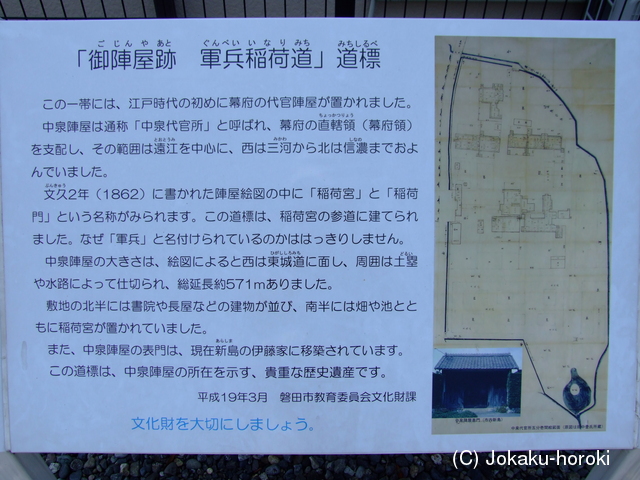 「御陣屋跡　軍兵稲荷道」道標
ごじんやあと　ぐんぺいいなりみち　みちしるべ
この一帯には、江戸時代の初めに幕府の代官陣屋が置かれました。
中泉陣屋は通称「中泉代官所」と呼ばれ、幕府の直轄領（幕府領）
ちょっかつりょう
を支配し、その範囲は遠江を中心に、西は三河から北は信濃までおよ
とおとうみ　みかわ　しなの
んでいました。
文久2年（1862）に書かれた陣屋絵図の中に「稲荷宮」と「稲荷
ぶんきゅう
門」という名称がみられます。この道標は、稲荷宮の参道に建てられ
ました。なぜ「軍兵」と名付けられているのかははっきりしません。
中泉陣屋の大きさは、絵図によると西は東城道に面し、周囲は土塁
ひがししろみち　どるい
や水路によって仕切られ、総延長約571mありました。
敷地の北半には書院や長屋などの建物が並び、南半には畑や池とと
もに稲荷宮が置かれていました。
また、中泉陣屋の表門は、現在新島の伊藤家に移築されています。
あらしま
この道標は、中泉陣屋の所在を示す、貴重な歴史遺産です。
平成19年3月　磐田市教育委員会文化財課
文化財を大切にしましょう。
(C) Jokaku-horoki